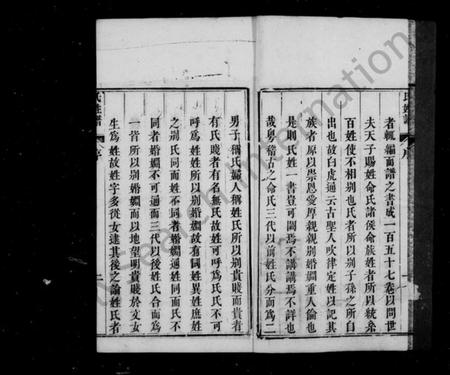 氏姓譜
序
者輒編而譜之書成一百五十七卷以問世
夫天子賜姓命氏諸侯命族姓者所以統系
百姓使不相別也氏者所以別子孫之所自
出也故白虎通云古聖人吹律定姓以記其
族者原以崇恩愛厚親親別婚姻重人倫也
是則氏姓一書豈可闕焉不講講焉不詳也
哉粤稽古之命氏三代以前姓氏分而為二
男子稱氏婦人稱姓氏所以別貴賤而貴者
有氏賤者有名無氏故姓可呼為氏氏不可
呼為姓姓所以別婚姻故有同姓異姓庶姓
之別氏同而姓不同者婚姻通姓同而氏不
同者婚姻不可通而三代以後姓氏合而為
一皆所以別婚姻而以地望明貴賤於文女
生為姓故姓字多從女逮其後之論姓氏者
氏姓譜
序
二